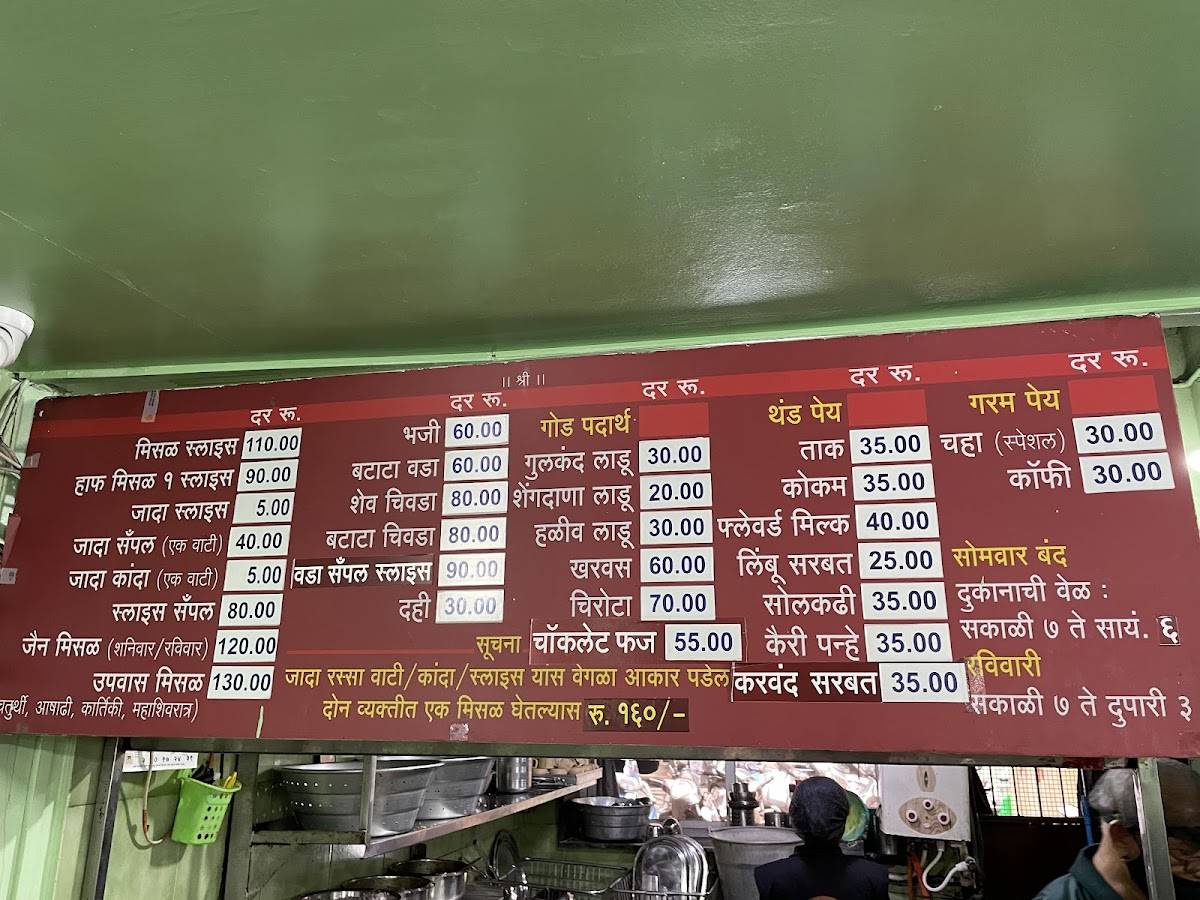 || श्री ||
दर रू.
मिसळ स्लाइस 110.00
हाफ मिसळ १ स्लाइस 90.00
जादा स्लाइस 5.00
जादा सँपल (एक वाटी) 40.00
जादा कांदा (एक वाटी) 5.00
स्लाइस सँपल 80.00
जैन मिसळ (शनिवार/रविवार) 120.00
उपवास मिसळ 130.00
आषाढी, कार्तिकी, महाशिवरात्र)
दर रू.
भजी 60.00
बटाटा वडा 60.00
शेव चिवडा 80.00
बटाटा चिवडा 80.00
वडा सँपल स्लाइस 90.00
दही 30.00
दर रू.
गोड पदार्थ
गुलकंद लाडू 30.00
शेंगदाणा लाडू 20.00
हळीव लाडू 30.00
खरवस 60.00
चिरोटा 70.00
चॉकलेट फज 55.00
सूचना
जादा रस्सा वाटी/कांदा/स्लाइस यास वेगळा आकार पडेल
दोन व्यक्तीत एक मिसळ घेतल्यास रु. १६०/-
दर रू.
थंड पेय
ताक 35.00
कोकम 35.00
फ्लेवर्ड मिल्क 40.00
लिंबू सरबत 25.00
सोलकढी 35.00
कैरी पन्हे 35.00
करवंद सरबत 35.00
दर रू.
गरम पेय
चहा (स्पेशल) 30.00
कॉफी 30.00
सोमवार बंद
दुकानाची वेळ :
सकाळी ७ ते सायं. ६
रविवारी
सकाळी ७ ते दुपारी ३